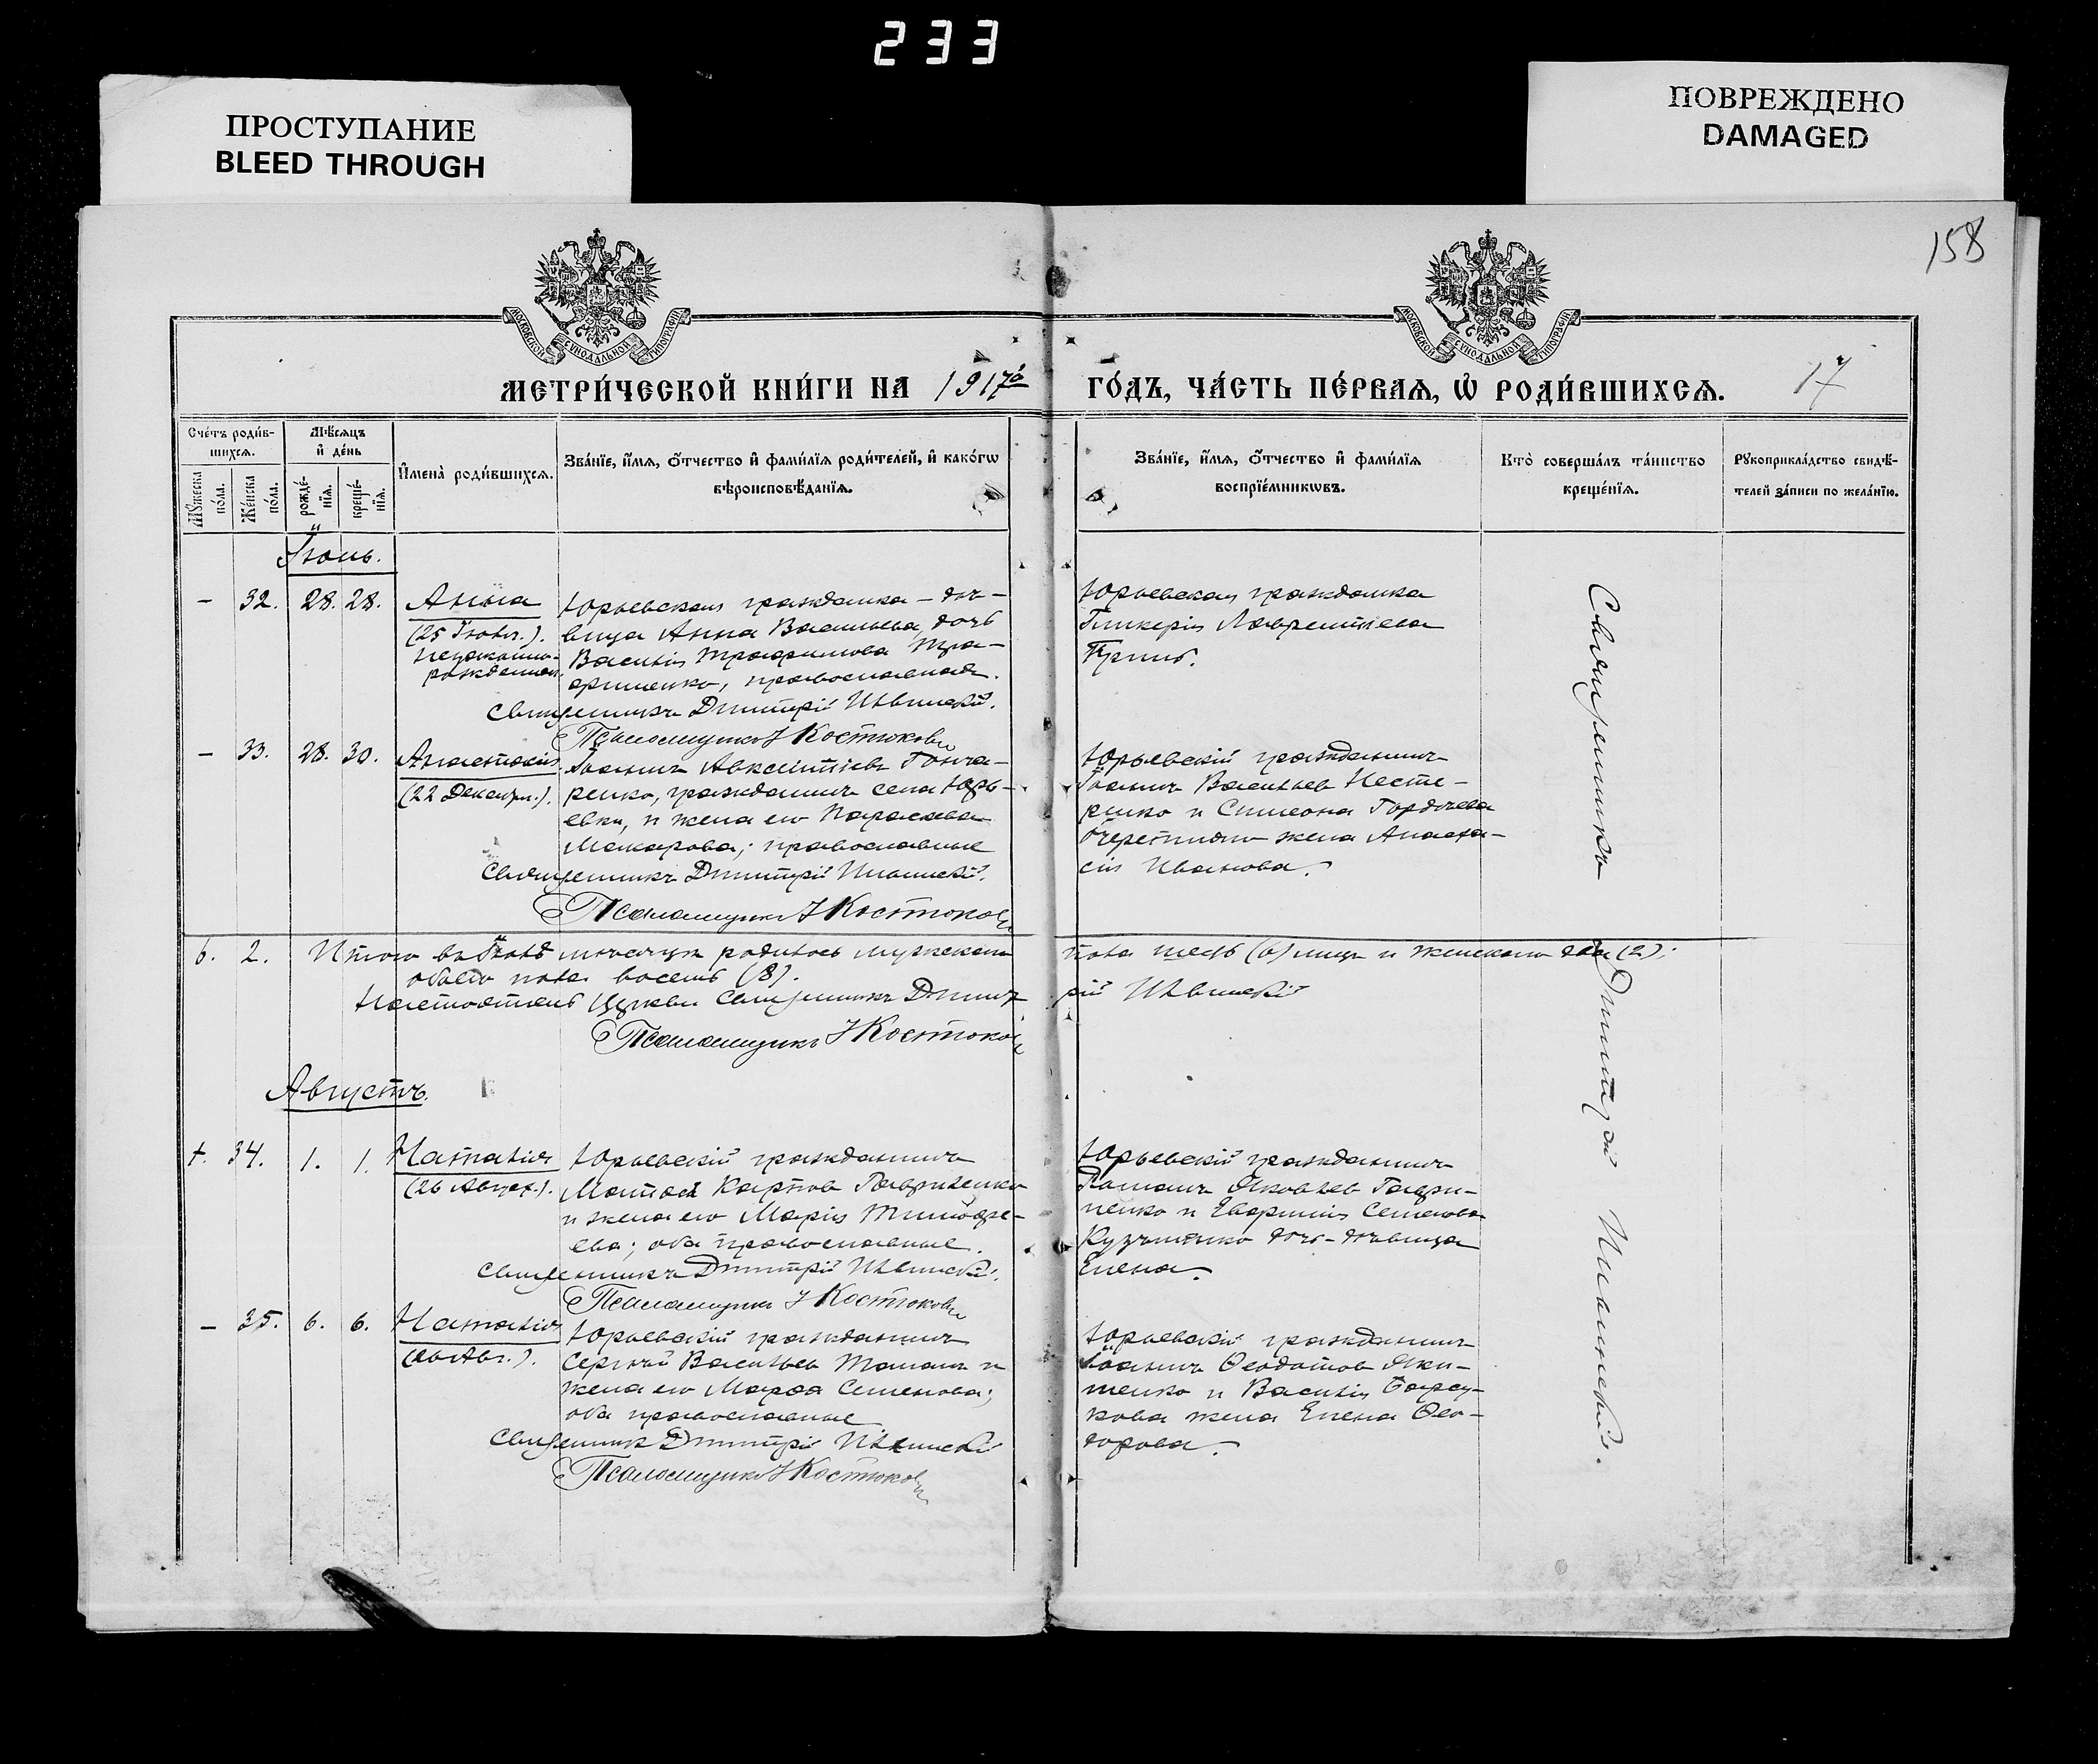 233
ПРОСТУПАНИЕ
BLEED THROUGH
ПОВРЕЖДЕНО
DAMAGED
158
МОСКОВСКОЙ СѴНОДАЛЬНОЙ ТИПОГРАФІИ
МОСКОВСКОЙ СѴНОДАЛЬНОЙ ТИПОГРАФІИ
МЕТРИ́ЧЕСКОЙ КНИ́ГИ НА 1917й
ГО́ДЪ, ЧА́СТЬ ПЕ́РВАѦ, Ѡ҆ РОДИ́ВШИХСѦ.
17
Сче́тъ роди́в-
шихсѧ.
Мꙋ́жеска по́ла.
Же́нска по́ла.
Мѣ́сѧцъ
и҆ де́нь
рожде́-
нїѧ.
креще́-
нїѧ.
И҆мена̀ роди́вшихсѧ.
Зва́нїе, и҆́мѧ, ѻ҆́тчество и҆ фами́лїѧ роди́телей, и҆ како́гѡ
вѣроисповѣ́данїѧ.
Зва́нїе, и҆́мѧ, ѻ҆́тчество и҆ фами́лїѧ
воспрїе́мникѡвъ.
Кто̀ соверша́лъ та́инство
креще́нїѧ.
Рꙋкоприкла́дство свидѣ́-
телей за́писи по жела́нїю.
Іюль.
– 32. 28. 28. Анна
(25 Іюля.).
Незаконно-
рожденная
Юрьевская гражданка – дѣ-
вица Анна Васильева, дочь
Василія Трофимова Тро-
фименко, православная.
Священникъ Дмитрій
Псаломщикъ І Костюковъ
Юрьевская гражданка
Гликерія Лаврентіева
– 33. 28. 30. Анастасія
(22 Декабря.).
Іоаннъ Авксентіевъ Гонча-
ренко, гражданинъ села Юрь-
евки, и жена его Параскева
Макарова; православные
Священникъ Дмитрій
Псаломщикъ І Костюковъ
Юрьевскій гражданинъ
Іоаннъ Васильевъ Несте-
ренко и Симеона Гордѣева
жена Анаста-
сія Иванова.
6. 2. Итого въ Іюлѣ мѣсяцѣ родилось мужескаго пола шесть (6) лицъ и женскаго два (2).
обоего пола восемь (8).
Настоятель Церкви Священникъ Дмитрій
Псаломщикъ І Костюковъ
Августъ.
34. 1. 1. Наталія
(26 Август.).
Юрьевскій гражданинъ
Карпов Гавриленко
и жена его Марія Тимофе-
ева; оба православные.
Священникъ Дмитрій
Псаломщикъ І Костюковъ
Юрьевскій гражданинъ
Романъ Яковлев Гаври-
ленко и Семенова
дочь–дѣвица
Елена.
– 35. 6. 6. Наталія
(26 Авг.).
Юрьевскій гражданинъ
Сергѣй Васильев и
жена его Марѳа Семенова;
оба православные
Священникъ Дмитрій
Псаломщикъ І Костюковъ
Юрьевскій гражданинъ
Іоаннъ Ѳеодотов Яки-
менко и Василія Барсу-
кова жена Елена Ѳео-
дорова.
Священникъ Дмитрій